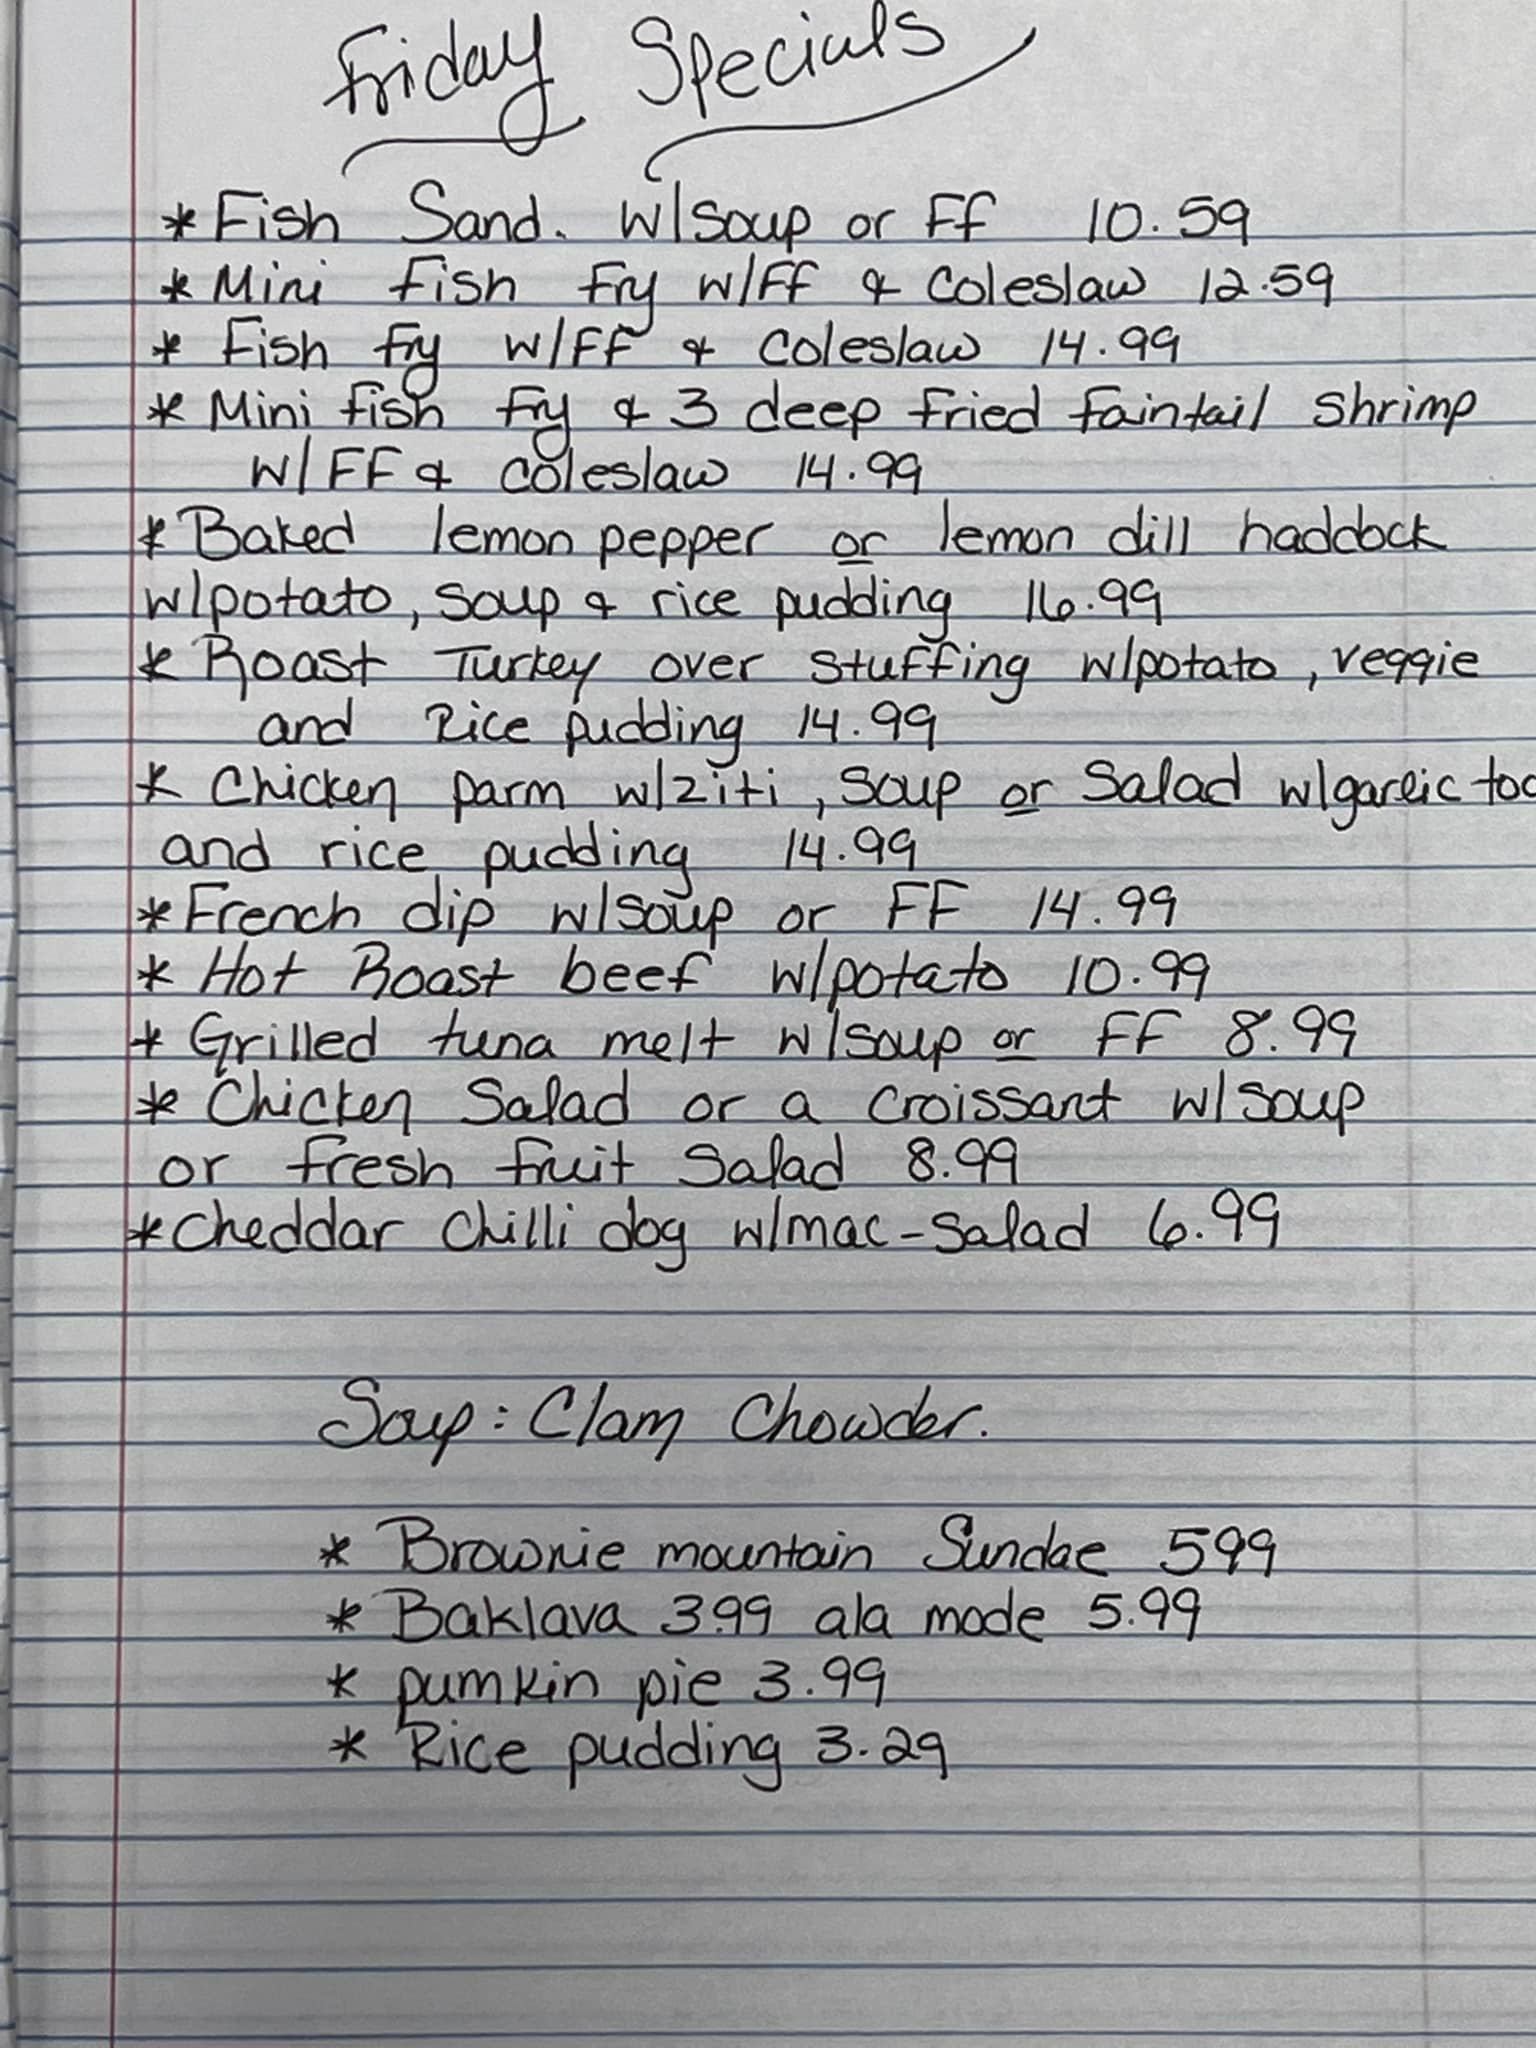 Friday Specials
* Fish Sand. w/soup or FF 10.59
* Mini fish fry w/FF & coleslaw 12.59
* Fish fry w/FF & coleslaw 14.99
* Mini fish fry & 3 deep fried faintail shrimp
w/FF & coleslaw 14.99
* Baked lemon pepper or lemon dill haddock
w/potato, soup & rice pudding 16.99
* Roast Turkey over stuffing w/potato, veggie
and Rice pudding 14.99
* Chicken parm w/ziti, soup or salad w/garlic
and rice pudding 14.99
* French dip w/soup or FF 14.99
* Hot Roast beef w/potato 10.99
* Grilled tuna melt w/soup or FF 8.99
* Chicken Salad or a croissant w/soup
or fresh fruit Salad 8.99
* Cheddar Chilli dog w/mac-salad 6.99
Soup: Clam Chowder.
* Brownie mountain Sundae 599
* Baklava 3.99 ala mode 5.99
* pumkin pie 3.99
* Rice pudding 3.29